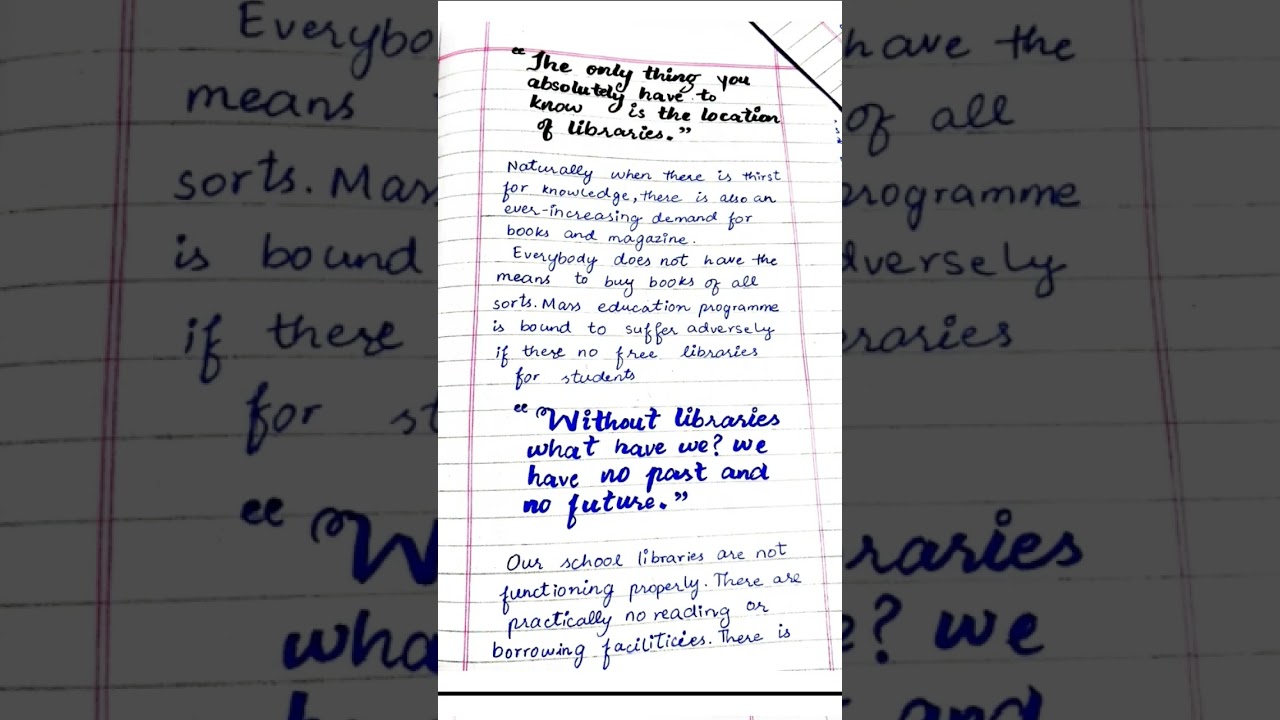 “The only thing you
absolutely have to
know is the location
of libraries.”
Naturally when there is thirst
for knowledge, there is also an
ever-increasing demand for
books and magazine.
Everybody does not have the
means to buy books of all
sorts. Mass education programme
is bound to suffer adversely
if there no free libraries
for students
“Without libraries
what have we? we
have no past and
no future.”
Our school libraries are not
functioning properly. There are
practically no reading or
borrowing faciliticies. There is